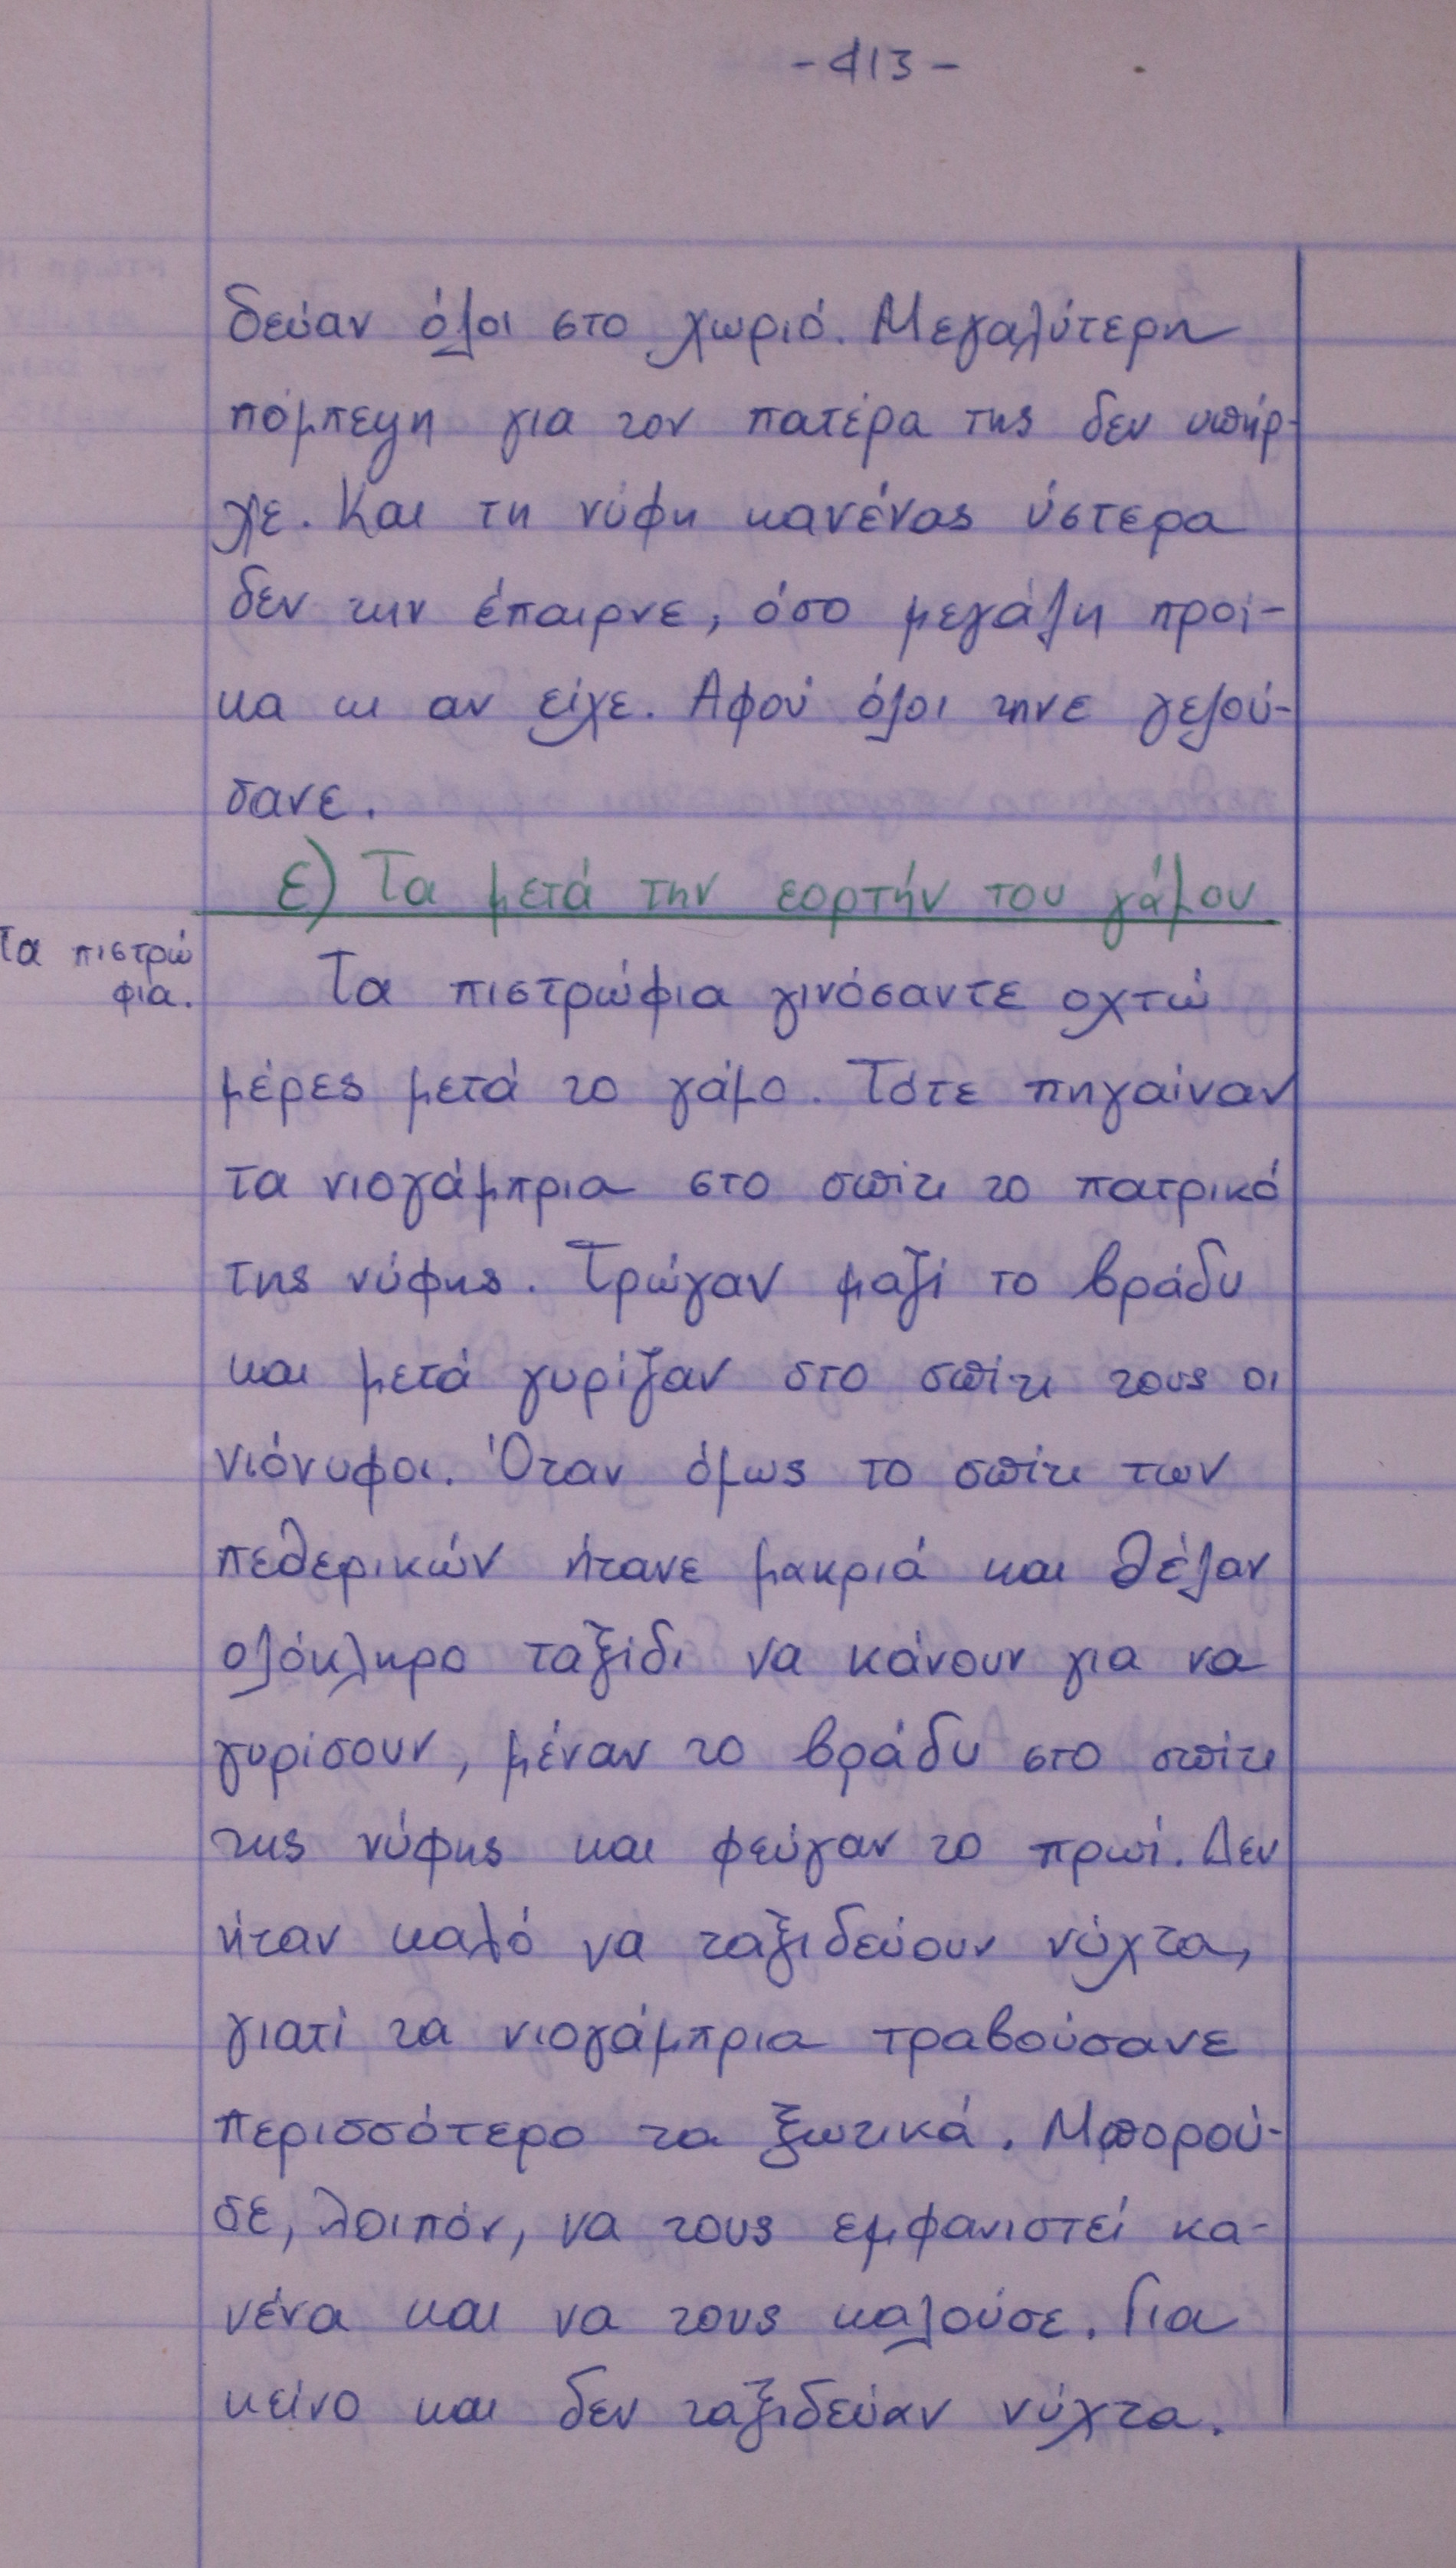 -413-
δεύαν όλοι στο χωριό. Μεγαλύτερη
πόμπεψη για τον πατέρα της δεν υπήρ-
χε. Και τη νύφη κανένας ύστερα
δεν την έπαιρνε, όσο μεγάλη προί-
κα κι αν είχε. Αφού όλοι τηνε γελού-
σανε.
ε) Τα μετά την εορτήν του γάμου
Τα πιστρώ
φια.
Τα πιστρώφια γινόσαντε οχτώ
μέρες μετά το γάμο. Τότε πηγαίναν
τα νιογάμπρια στο σπίτι το πατρικό
της νύφης. Τρώγαν μαζί το βράδυ
και μετά γυρίζαν στο σπίτι τους οι
νιόνυφοι. Όταν όμως το σπίτι των
πεθερικών ήτανε μακριά και θέλαν
ολόκληρο ταξίδι να κάνουν για να
γυρίσουν, μέναν το βράδυ στο σπίτι
της νύφης και φεύγαν το πρωί. Δεν
ήταν καλό να ταξιδεύουν νύχτα,
γιατί τα νιογάμπρια τραβούσανε
περισσότερο τα ξωτικά. Μπορού-
σε, λοιπόν, να τους εμφανιστεί κα-
νένα και να τους χαλούσε. Για
κείνο και δεν ταξιδεύαν νύχτα.